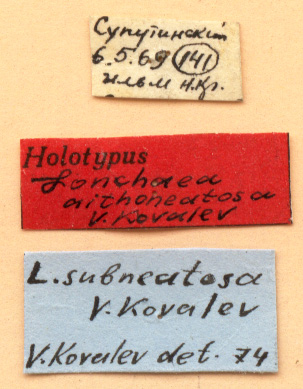 Супутинский
6.5.69 (141)
ильм н.кр.
Holotypus
Lonchaea
aithoneatosa
V. Kovalev
L. subneatosa
V. Kovalev
V. Kovalev det. 74